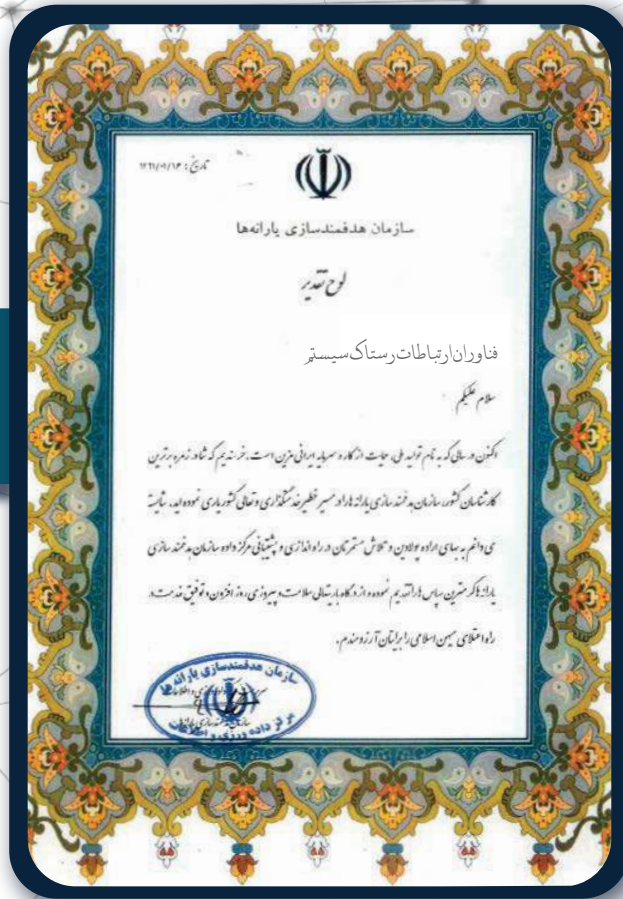 تاریخ : ۱۳۹۱/۰۹/۱۴
سازمان هدفمندسازی یارانه‌ها
لوح تقدیر
فناوران ارتباطات رستاک سیستم
سلام علیکم
اکنون در سالی که به نام تولید ملی، حمایت از کار و سرمایه ایرانی مزین است، خرسندیم که شما در زمره برترین
کارشناسان کشور، سازمان هدفمندسازی یارانه ها را در مسیر خطیر خدمتگذاری و تعالی کشور یاری نموده اید، شایسته
می دانم به پاس اراده پولادین و تلاش مستمرتان در راه اندازی و پشتیبانی مرکز داده سازمان هدفمندسازی
یارانه ها گرمترین سپاس ها را تقدیم نموده و از درگاه باریتعالی سلامت و پیروزی روز افزون و توفیق خدمت در
راه اعتلای میهن اسلامی را برایتان آرزومندم.
سازمان هدفمندسازی یارانه ها
مرکز داده ورزی و اطلاعات